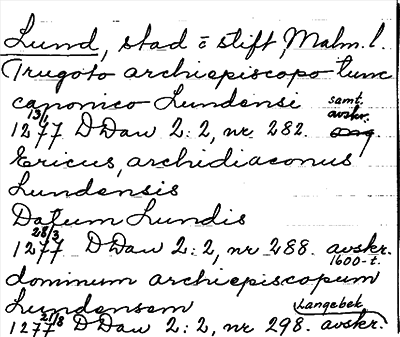 Lund, stad o stift, Malm. l.
Trugoto archiepiscopo tunc
canonico Lundensi samt.
13/1 avskr.
1277 DDan 2:2, nr 282.
Ericus, archidiaconus
Lundensis
Datum Lundis
28/3
1277 DDan 2:2, nr 288. avskr.
1600-t.
dominum archiepiscopum
Lundensem Langebek
21/8
1277 DDan 2:2, nr 298. avskr.